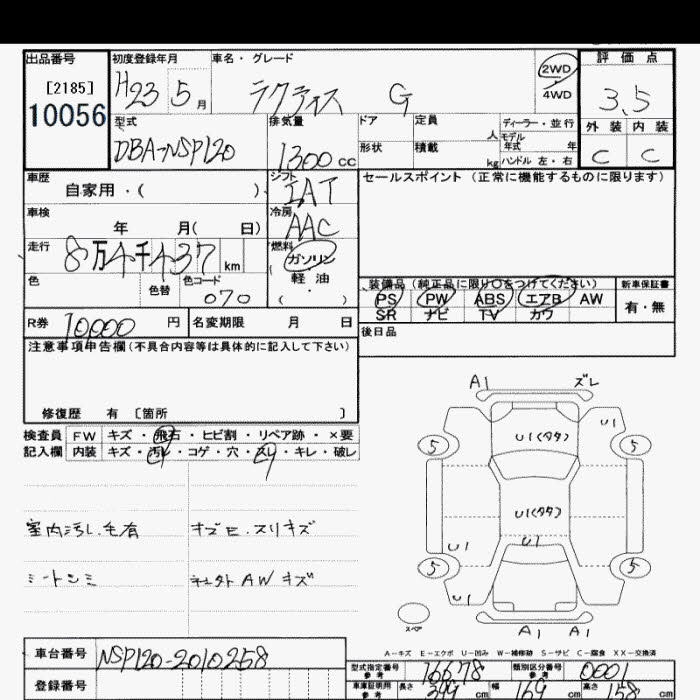 出品番号 初度登録年月 車名・グレード 2WD 4WD 評価点
[2185]
10056
H23 5月 ラクティス G 3.5
型式 排気量 ドア 定員 人 ディーラー・並行 外装 内装
モデル年式 年
DBA-NSP120 1300cc 形状 積載 kg ハンドル 左・右 C C
車歴 シフト セールスポイント(正常に機能するものに限ります)
自家用・( ) IAT
車検 冷房
年 月( 日) AAC
走行 燃料
8万4千437km ガソリン
軽油
( ・ )
色 色替 色コード 070
装備品(純正品に限り○をつけてください) 新車保証書
PS PW ABS エアB AW 有・無
SR ナビ TV カワ
R券 10,000円 名変期限 月 日 後日品
注意事項申告欄(不具合内容等は具体的に記入して下さい)
修復歴 有 〔箇所 〕
検査員 FW キズ・飛石・ヒビ割・リペア跡・×要
記入欄 内装 キズ・汚レ・コゲ・穴・スレ・キレ・破レ
室内汚し.毛有 キズE.スリキズ
AW キズ
A1 ズレ
U1
U1(タタ)
5 5
U1(タタ)
U1 U1
5 5
U1
スペア
A1 A1
A-キズ E-エクボ U-凹み W-補修跡 S-サビ C-腐食 XX-交換済
車台番号 NSP120-2010258
登録番号
型式指定番号 参考 16678 類別区分番号 参考 0001
車庫証明用 参考 長さ 399 cm 幅 169 cm 高さ 158 cm